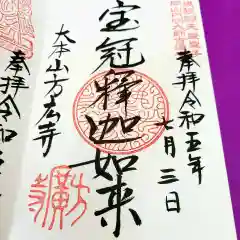 奉拝 令和五年
七月三日
宝冠釋迦如来
大本山方広寺
奉拝 令和